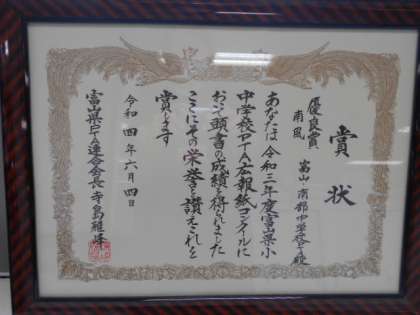 賞状
優良賞
南風
富山市立南部中学校PTA殿
あなたは令和三年度富山県小
中学校PTA広報紙コンクールに
おいて頭書の成績を得られました
ここにその栄誉を讃えこれを
賞します
令和四年六月四日
富山県PTA連合会会長 寺島雅峰